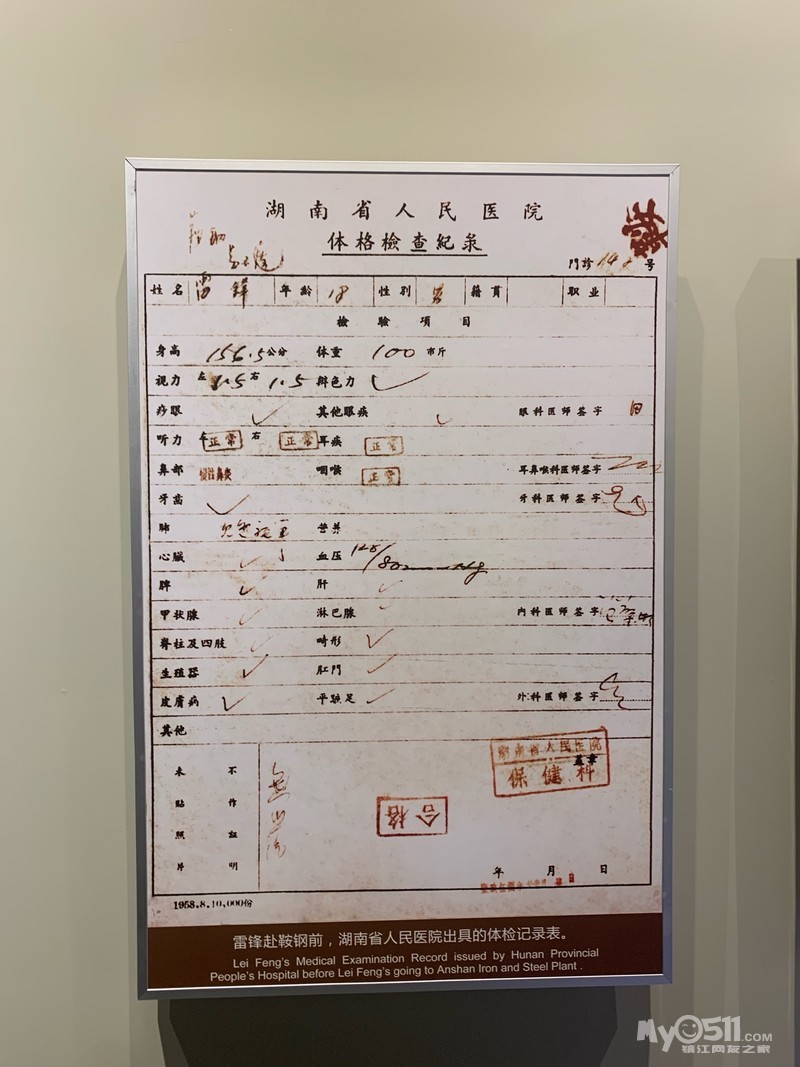 湖南省人民医院
体格檢查紀录
門診 号
姓名 雷鋒 年齡 18 性別 男 籍貫 职业
檢驗項目
身高 156.5公分 体重 100 市斤
視力 左1.5 右1.5 辩色力 ✓
痧眼 ✓ 其他眼疾 ✓ 眼科医师签字
听力 左 正常 右 正常 耳疾 正常
鼻部 咽喉 正常 耳鼻喉科医师签字
牙齿 ✓ 牙科医师签字
肺 营养
心臟 ✓ 血压 128/80mmHg
脾 ✓ 肝 ✓
甲状腺 ✓ 淋巴腺 ✓ 内科医师签字
脊柱及四肢 ✓ 畸形 ✓
生殖器 ✓ 肛門 ✓
皮膚病 ✓ 平蹠足 ✓ 外科医师签字
其他
未貼照片 不作証明
湖南省人民医院
保健科
盖章
合格
年 月 日
1958.8.10,000份
雷锋赴鞍钢前，湖南省人民医院出具的体检记录表。
Lei Feng's Medical Examination Record issued by Hunan Provincial
People's Hospital before Lei Feng's going to Anshan Iron and Steel Plant .
My0511.COM
镇江网友之家